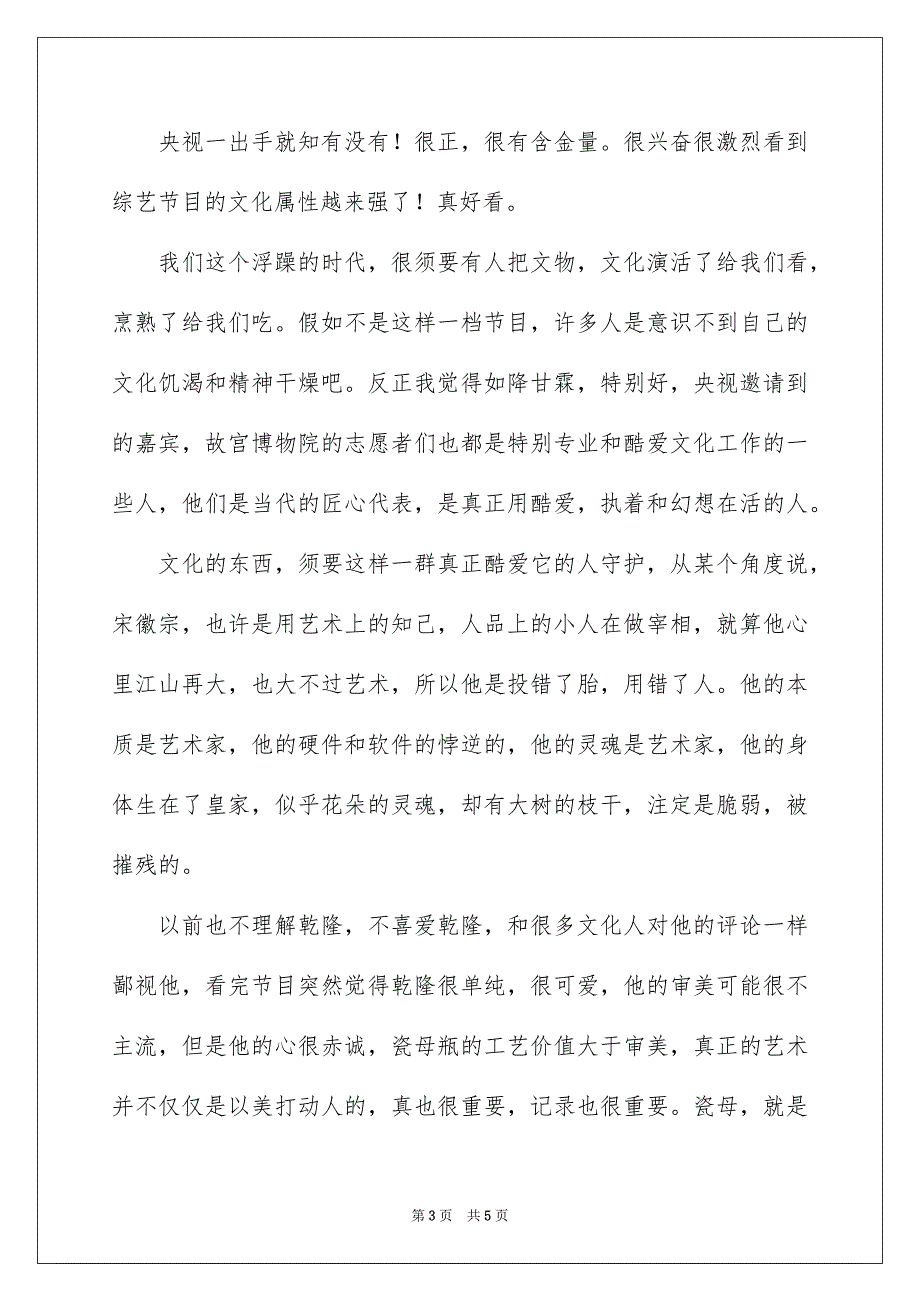 央视一出手就知有没有！很正，很有含金量。很兴奋很激烈看到
综艺节目的文化属性越来强了！真好看。
我们这个浮躁的时代，很须要有人把文物，文化演活了给我们看，
烹熟了给我们吃。假如不是这样一档节目，许多人是意识不到自己的
文化饥渴和精神干燥吧。反正我觉得如降甘霖，特别好，央视邀请到
的嘉宾，故宫博物院的志愿者们也都是特别专业和酷爱文化工作的一
些人，他们是当代的匠心代表，是真正用酷爱，执着和幻想在活的人。
文化的东西，须要这样一群真正酷爱它的人守护，从某个角度说，
宋徽宗，也许是用艺术上的知己，人品上的小人在做宰相，就算他心
里江山再大，也大不过艺术，所以他是投错了胎，用错了人。他的本
质是艺术家，他的硬件和软件的悖逆的，他的灵魂是艺术家，他的身
体生在了皇家，似乎花朵的灵魂，却有大树的枝干，注定是脆弱，被
摧残的。
以前也不理解乾隆，不喜爱乾隆，和很多文化人对他的评论一样
鄙视他，看完节目突然觉得乾隆很单纯，很可爱，他的审美可能很不
主流，但是他的心很赤诚，瓷母瓶的工艺价值大于审美，真正的艺术
并不仅仅是以美打动人的，真也很重要，记录也很重要。瓷母，就是
第 3 页 共 5 页